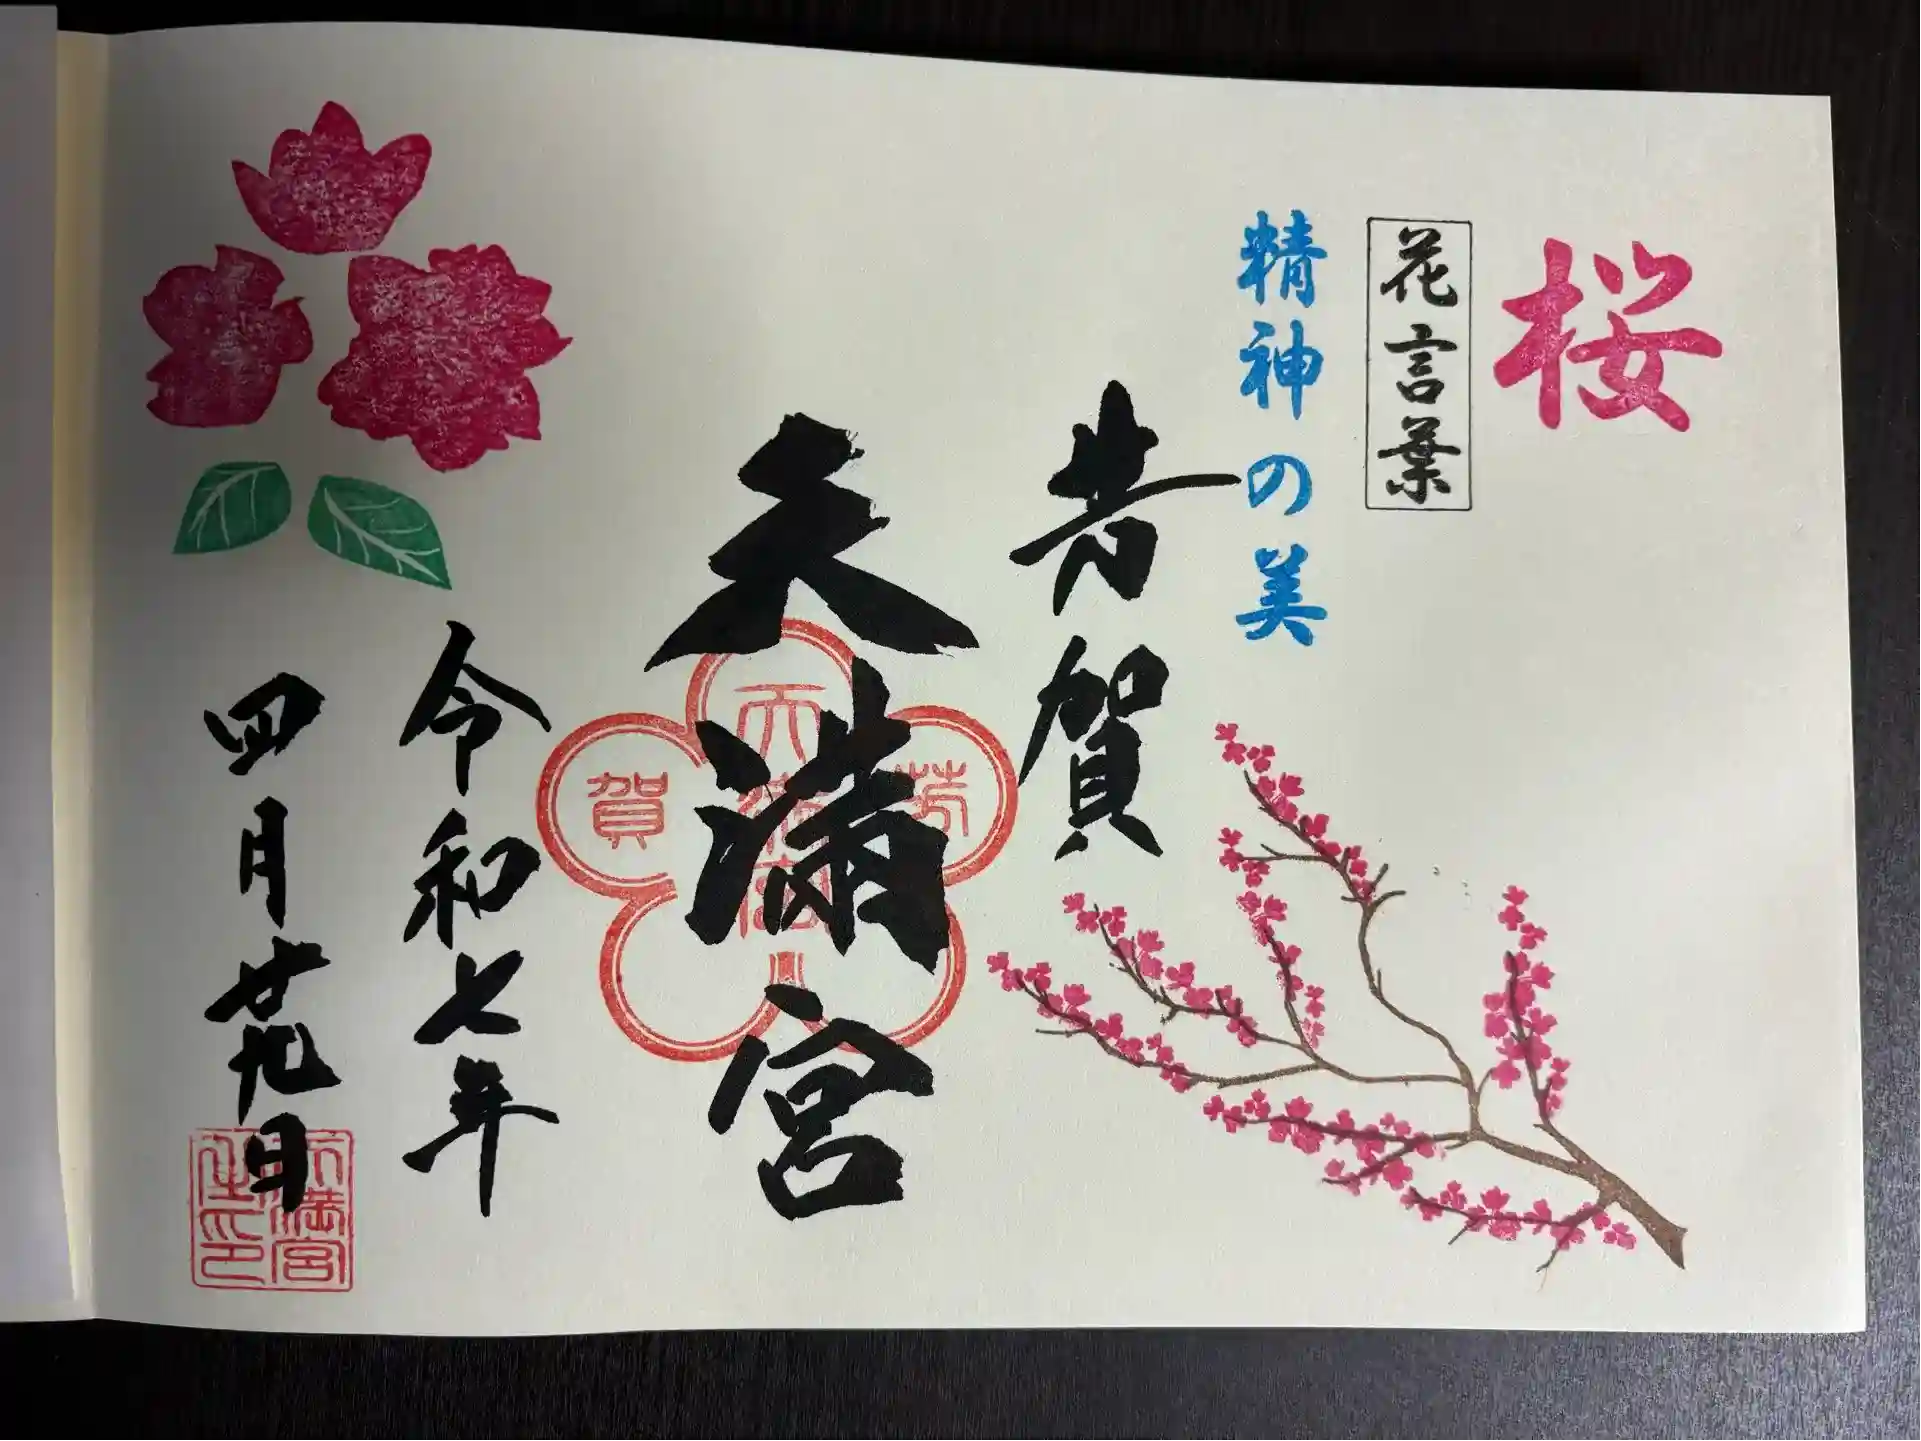 桜
花言葉
精神の美
芳賀
天満宮
芳
天満宮
賀
令和七年
四月廿九日
天満宮
之印